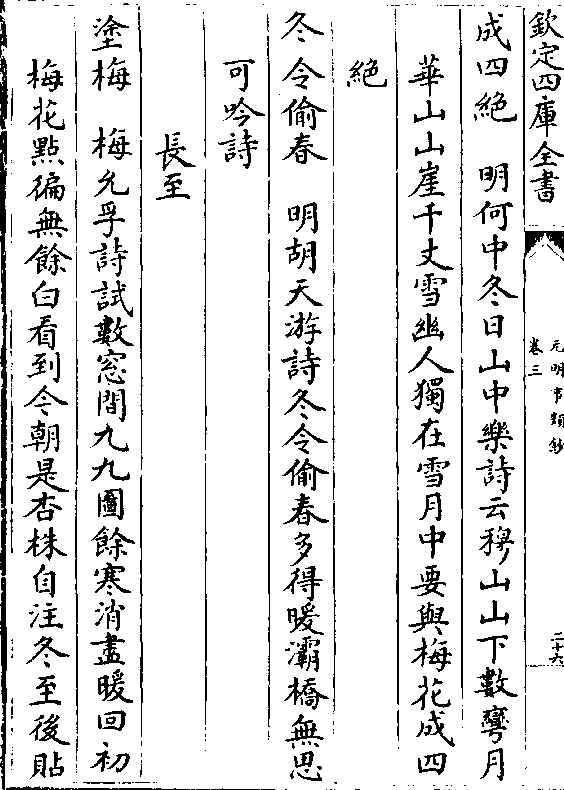 欽定四庫全書
元明事類鈔
卷三
二十六
成四絶　明何中冬日山中樂詩云稗山山下數彎月
華山山崖千丈雪幽人獨在雪月中要與梅花成四
絶
冬令偷春　明胡天游詩冬令偷春多得暖灞橋無思
可吟詩
長至
塗梅　梅允孚詩試數窓間九九圖餘寒消盡暖回初
梅花點徧無餘白看到今朝是杏株自注冬至後貼